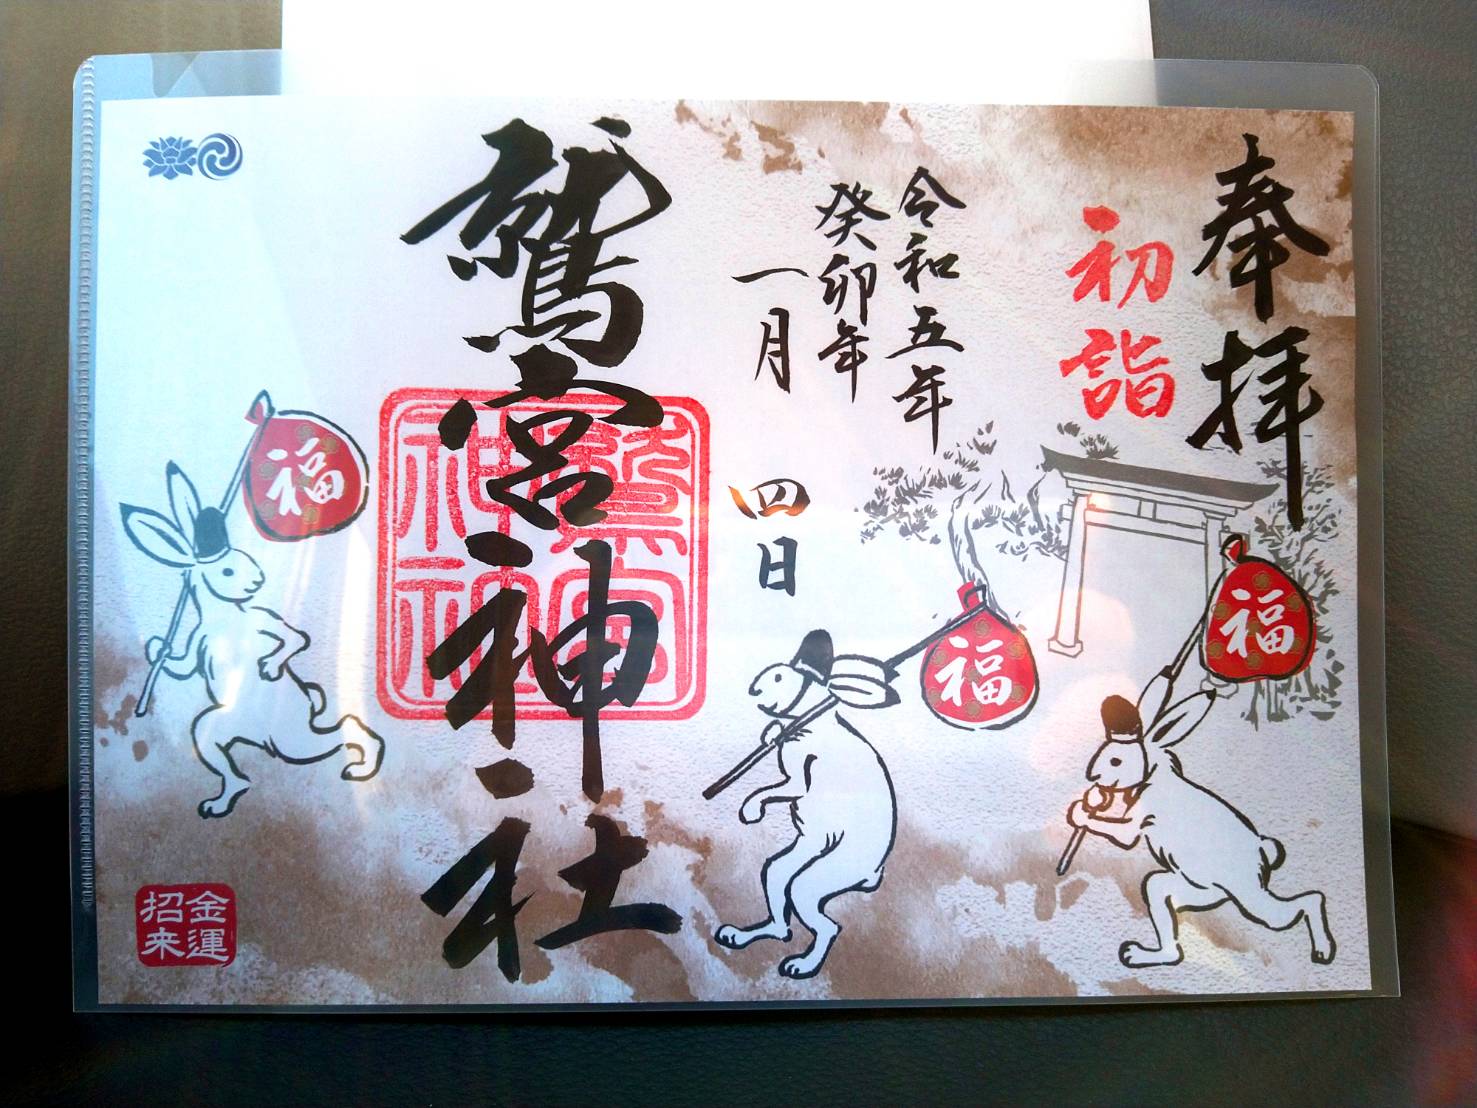 奉拝
初詣
令和五年
癸卯年
一月 四日
鷲宮神社
鷲宮
神社
福
福
福
金運
招来